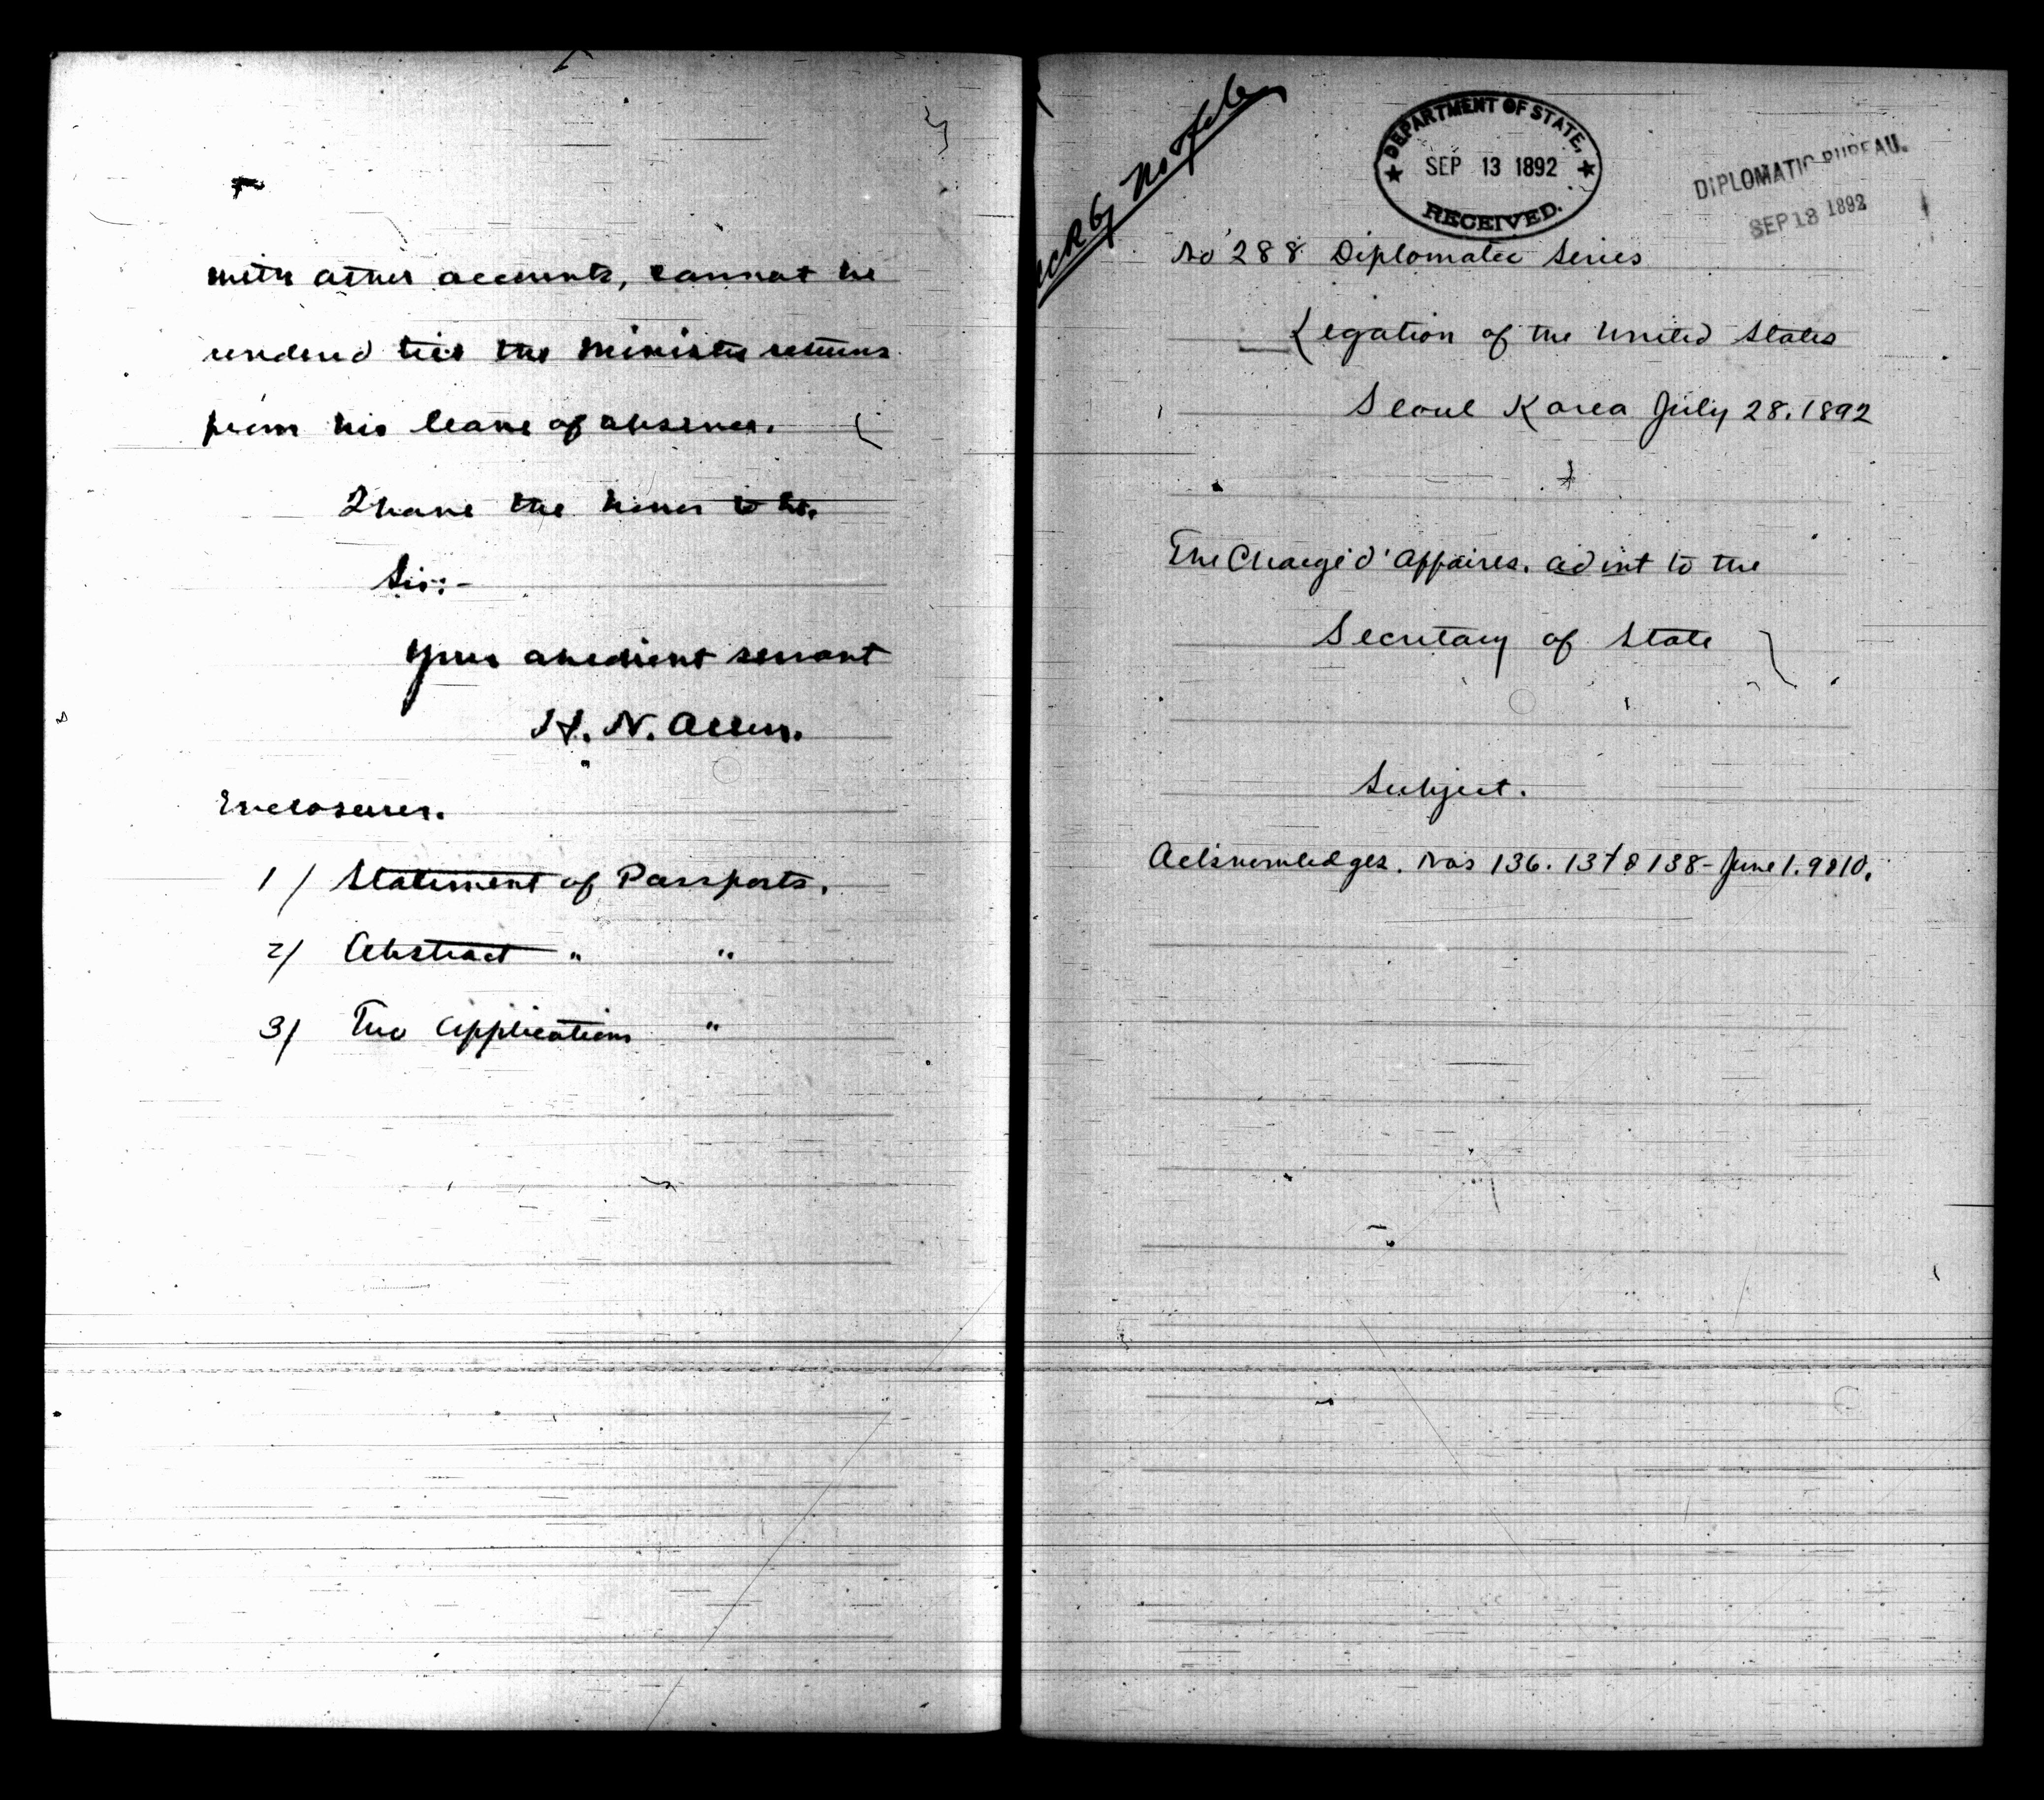 with other accounts, cannot be
rendered till the Minister returns
from his leave of absence.
I have the honor to be,
Sir:-
Your obedient servant
H. N. Allen.
Enclosures.
1/ Statement of Passports.
2/ Abstract " "
3/ Two Applications "
DEPARTMENT OF STATE,
SEP 13 1892
RECEIVED.
DIPLOMATIC BUREAU.
SEP 13 1892
No 288 Diplomatic Series
Legation of the United States
Seoul Korea July 28. 1892
The Chargé d'Affaires. ad int to the
Secretary of State
Subject.
Acknowledges. Nos 136. 137 & 138 - June 1. 9 & 10.